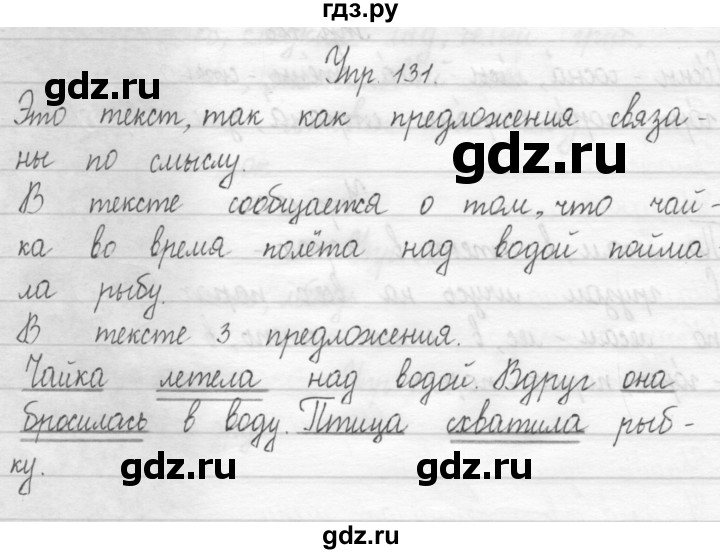 гдз.ру
Упр. 131.
Это текст, так как предложения связа-
ны по смыслу.
В тексте сообщается о том, что чай-
ка во время полёта над водой пойма
ла рыбу.
В тексте 3 предложения.
Чайка летела над водой. Вдруг она
бросилась в воду. Птица схватила рыб-
ку.
gdz.ru
gdz.ru
gdz.ru
gdz.ru
gdz.ru
gdz.ru
gdz.ru